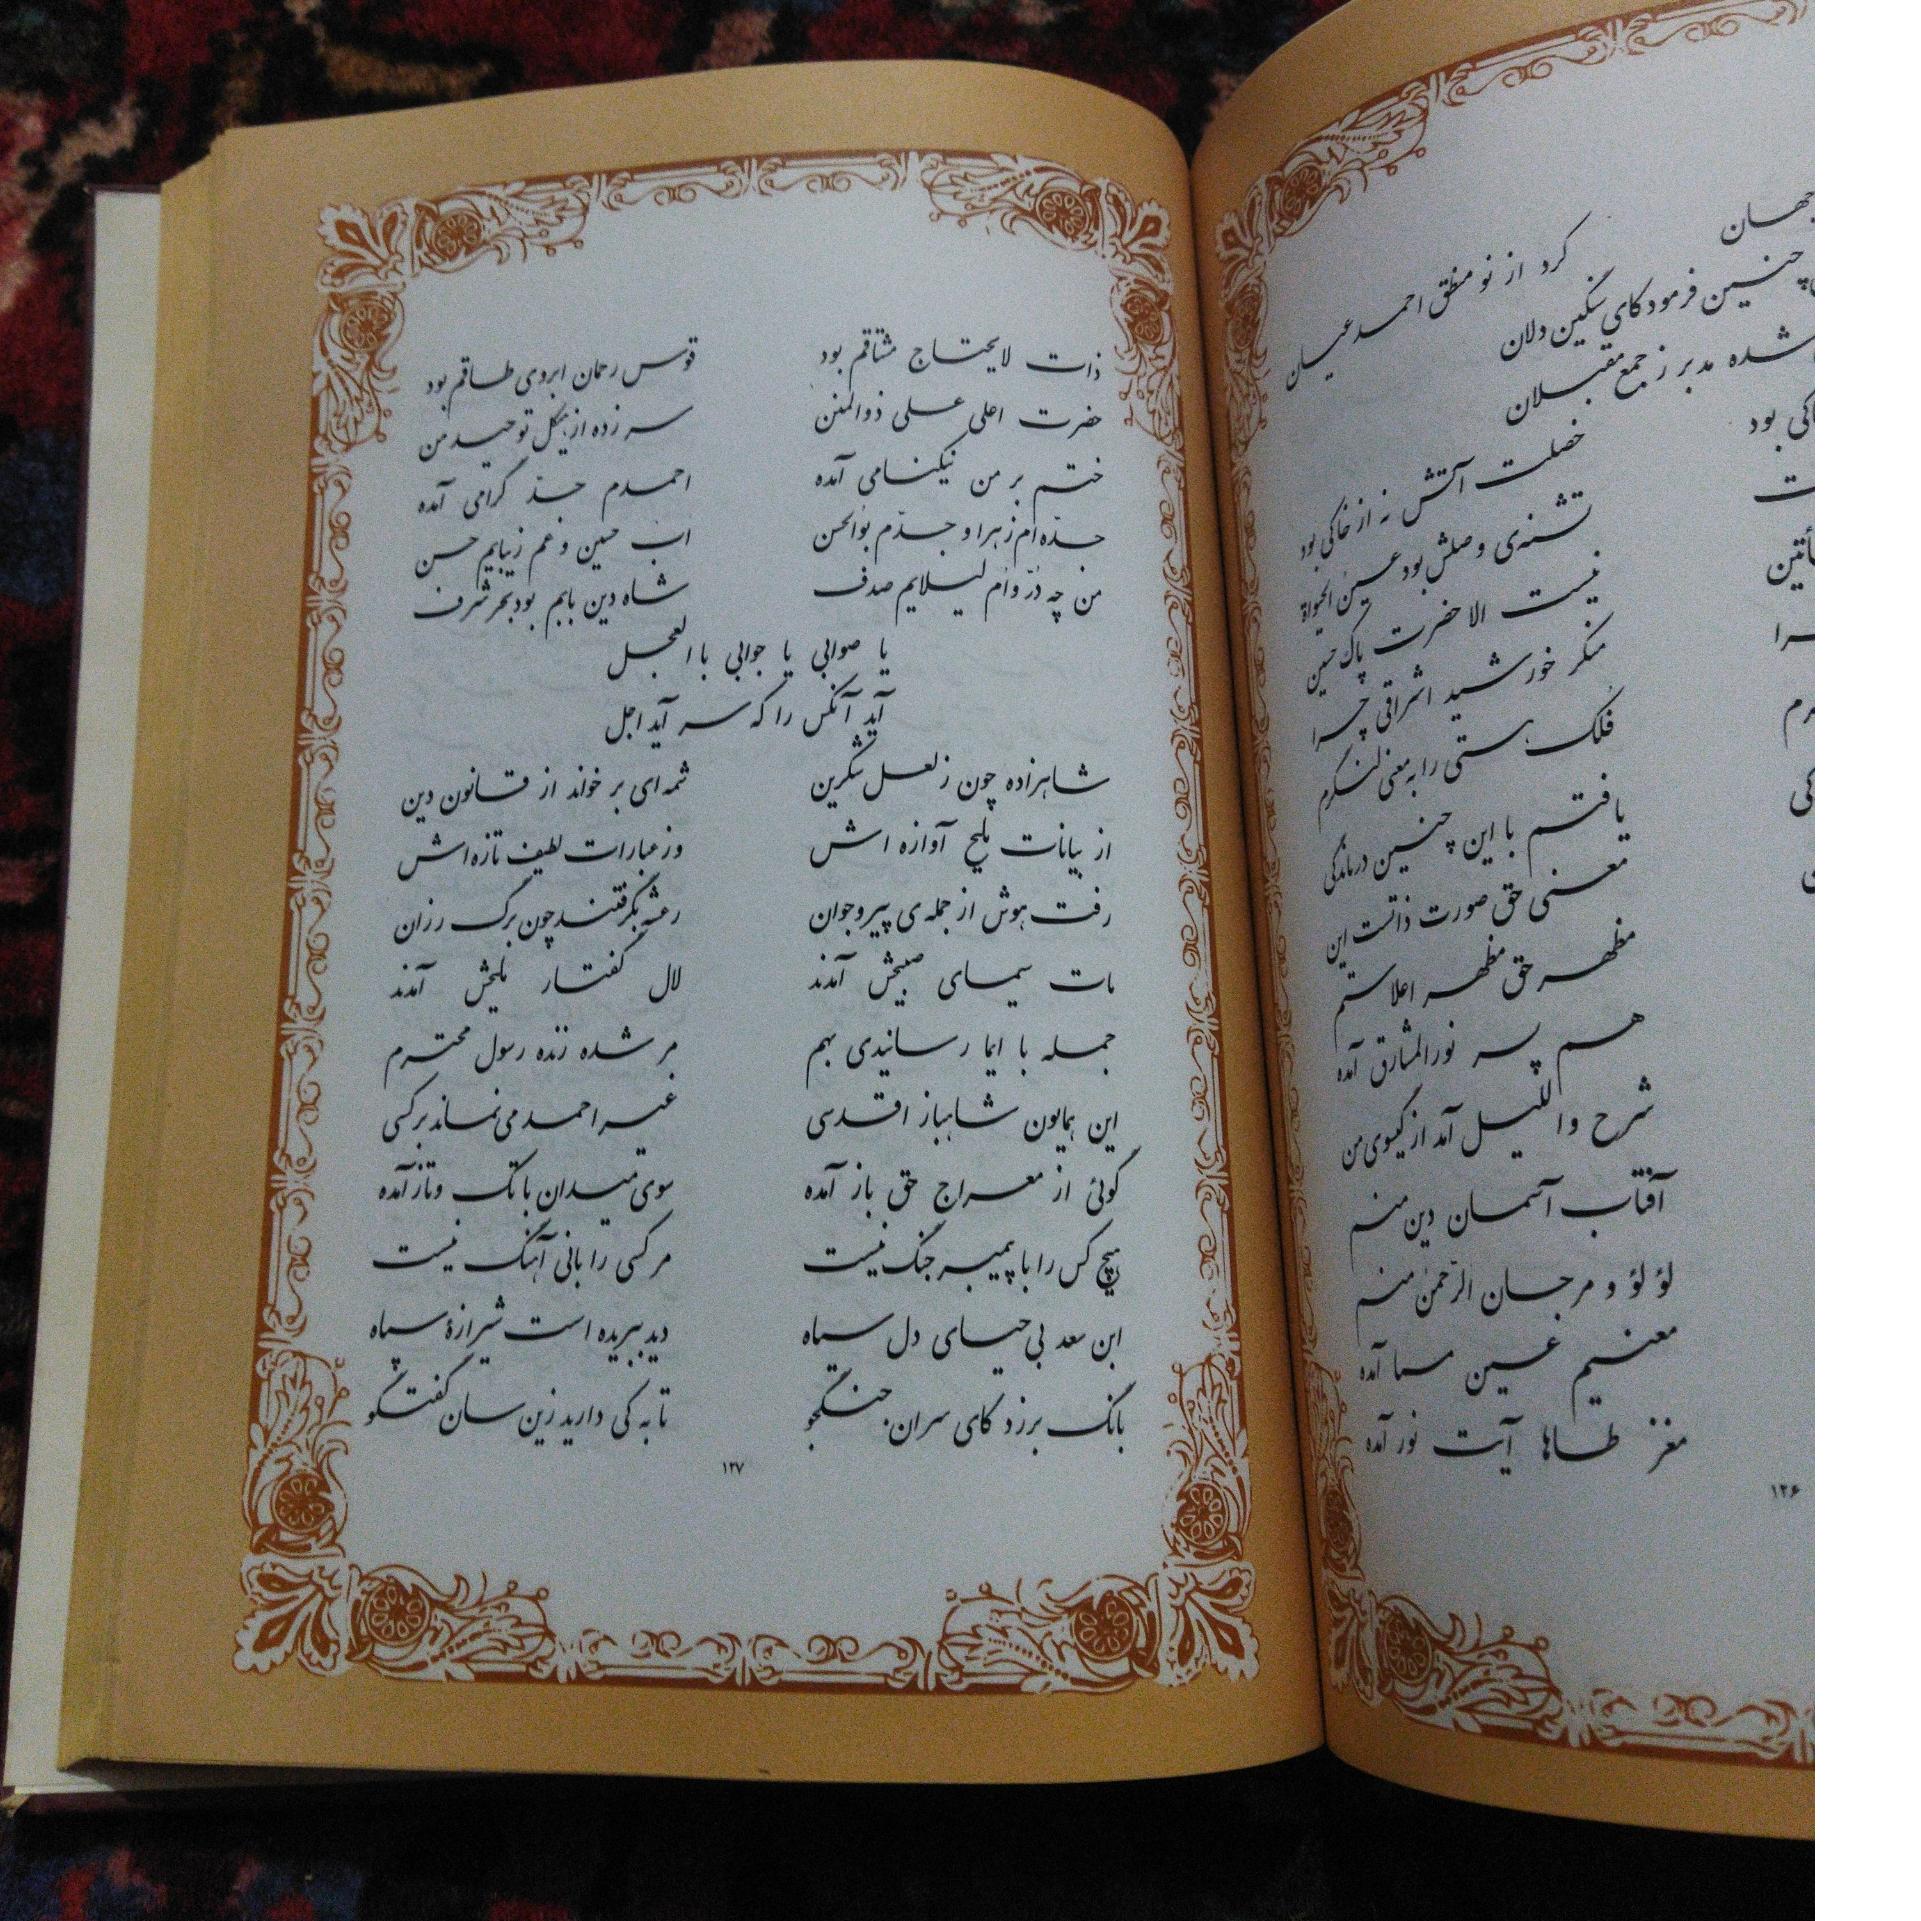 جهان
کرد از نو منطق احمد عیان
چنین فرمود کای سنگین دلان
شده مدبر ز جمع مقبلان
خصلت آتش نه از خاکی بود
تشنه‌ی وصلش بود عین الحیوة
نیست الا حضرت پاک حسین
منکر خورشید اشراقی چرا
فلک هستی را به معنی لنگرم
یافتم با این چنین درماندگی
معنی حق صورت ذاتست این
مظهر حق مظهر اعلاستم
هم پسر نورالمشارق آمده
شرح واللیل آمد از گیسوی من
آفتاب آسمان دین منم
لؤلؤ و مرجان الرّحمن منم
معنیم عین سما آمده
مغز طاها آیت نور آمده
۱۲۶
ذات لایحتاج مشتاقم بود قوس رحمان ابروی طاقم بود
حضرت اعلی علی ذوالمنن سر زده از هیکل توحید من
ختم بر من نیکنامی آمده احمدم جدّ گرامی آمده
جدّه‌ام زهرا و جدّم بوالحسن اب حسین و عم زیبایم حسن
من چه درّ و ام لیلایم صدف شاه دین بابم بود بحر شرف
یا صوابی یا جوابی با العجل
آید آنکس را که سر آید اجل
شاهزاده چون ز لعل شکرین شمه‌ای بر خواند از قانون دین
از بیانات ملیح آوازه اش وز عبارات لطیف تازه‌اش
رفت هوش از جمله‌ی پیر و جوان رعشه بگرفتند چون برگ رزان
مات سیمای صبیحش آمدند لال گفتار ملیحش آمدند
جمله با ایما رسانیدی بهم مر شده زنده رسول محترم
این همایون شاهباز اقدسی غیر احمد می‌نماند بر کسی
گوئی از معراج حق باز آمده سوی میدان با تک و تاز آمده
هیچ کس را با پیمبر جنگ نیست مر کسی را بانی آهنگ نیست
ابن سعد بی حیای دل سیاه دید ببریده است شیرازهٔ سپاه
بانگ برزد کای سران جنگجو تا به کی دارید زین سان گفتگو
۱۲۷